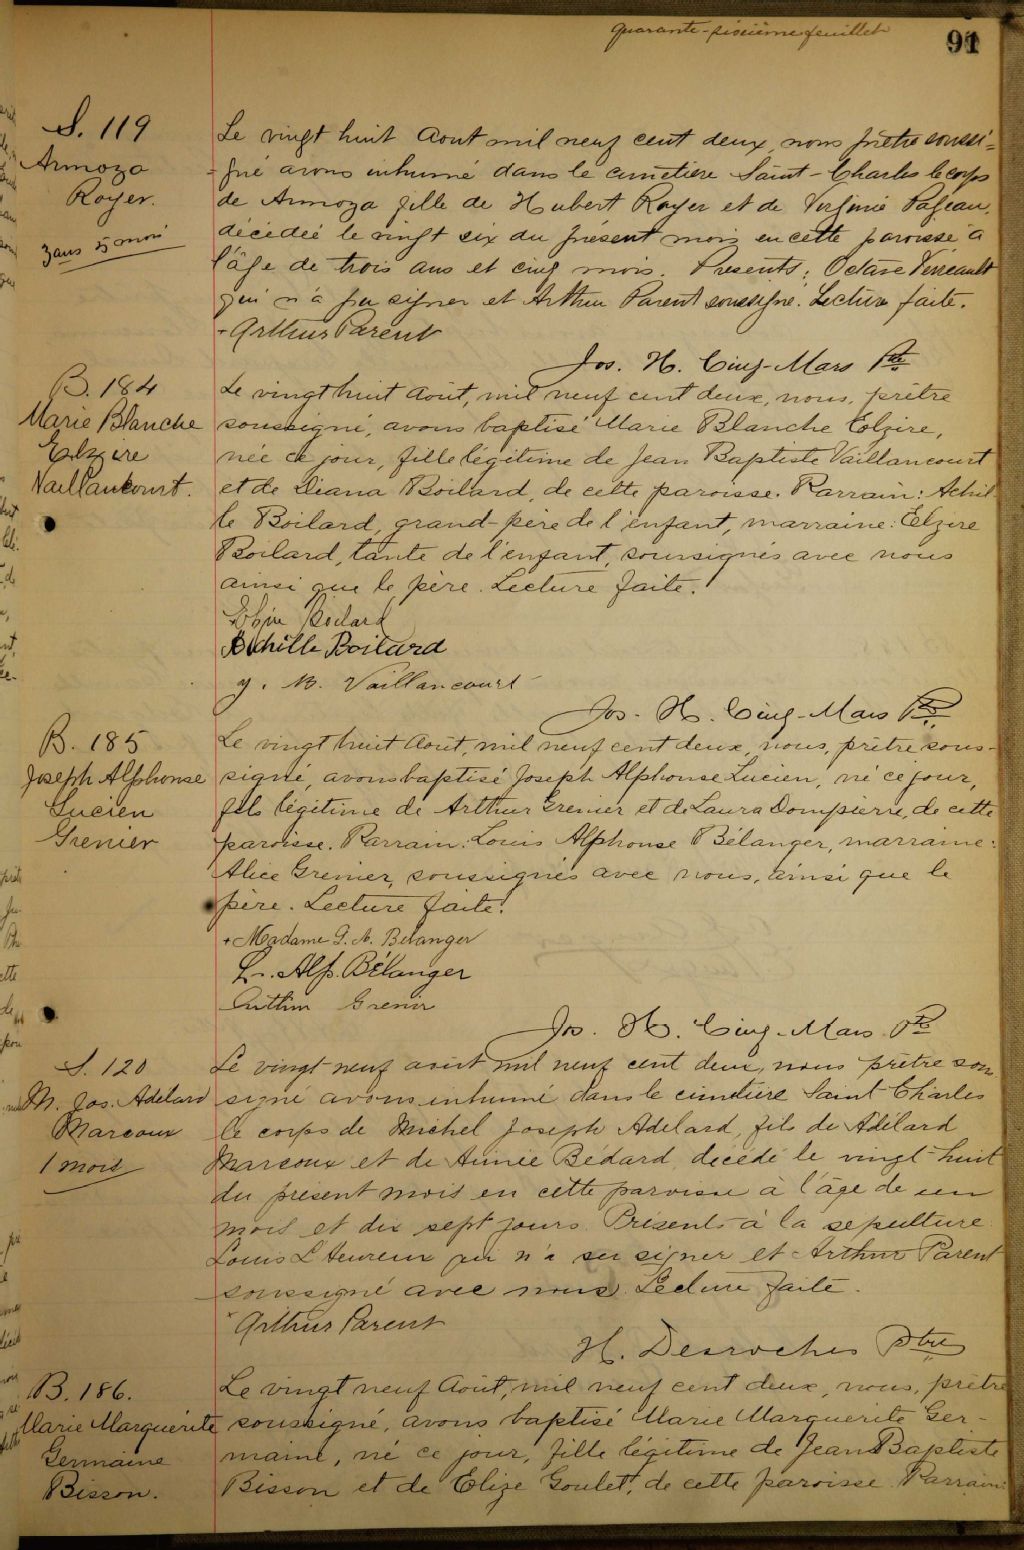 quarante-sixième feuillet
91
S. 119
Armoza
Royer.
3 ans 5 mois
Le vingt huit Aout mil neuf cent deux, nous prêtre soussi=
=gné avons inhumé dans le cimetière Saint-Charles le corps
de Armoza fille de Hubert Royer et de Virginie Pageau,
décédée le vingt six du présent mois en cette paroisse à
l'âge de trois ans et cinq mois. Présents: Octave Verreault
qui n'a pu signer et Arthur Parent soussigné. Lecture faite.
Arthur Parent
Jos. H. Cinq-Mars Ptre
B. 184
Marie Blanche
Elzire
Vaillancourt.
Le vingt huit Août, mil neuf cent deux, nous, prêtre
soussigné, avons baptisé Marie Blanche Elzire,
née ce jour, fille légitime de Jean Baptiste Vaillancourt
et de Diana Boilard, de cette paroisse. Parrain: Achil-
le Boilard, grand-père de l'enfant, marraine: Elzire
Boilard, tante de l'enfant, soussignés avec nous
ainsi que le père. Lecture faite.
Elzire Boilard
Achille Boilard
J. B. Vaillancourt
Jos. H. Cinq-Mars Ptre
B. 185
Joseph Alphonse
Lucien
Grenier
Le vingt huit Août, mil neuf cent deux, nous, prêtre sous-
signé, avons baptisé Joseph Alphonse Lucien, né ce jour,
fils légitime de Arthur Grenier et de Laura Dompierre, de cette
paroisse. Parrain: Louis Alphonse Bélanger, marraine:
Alice Grenier, soussignés avec nous, ainsi que le
père. Lecture faite.
+ Madame G. A. Belanger
L. Alp. Bélanger
Arthur Grenier
Jos. H. Cinq-Mars Ptre
S. 120
M. Jos. Adélard
Marcoux
1 mois
Le vingt-neuf août mil neuf cent deux, nous prêtre sou
signé avons inhumé dans le cimetière Saint Charles
le corps de Michel Joseph Adelard, fils de Adélard
Marcoux et de Aimée Bédard décédé le vingt-huit
du présent mois en cette paroisse à l'âge de un
mois et dix sept jours. Présents à la sepulture
Louis L'Heureux qui n'a su signer et Arthur Parent
soussigné avec nous. Lecture faite.
Arthur Parent
H. Desroches Ptre
B. 186.
Marie Marguérite
Germaine
Bisson.
Le vingt neuf Août, mil neuf cent deux, nous, prêtre
soussigné, avons baptisé Marie Marguerite Ger-
maine, né ce jour, fille légitime de Jean Baptiste
Bisson et de Elize Goulet, de cette paroisse. Parrain: